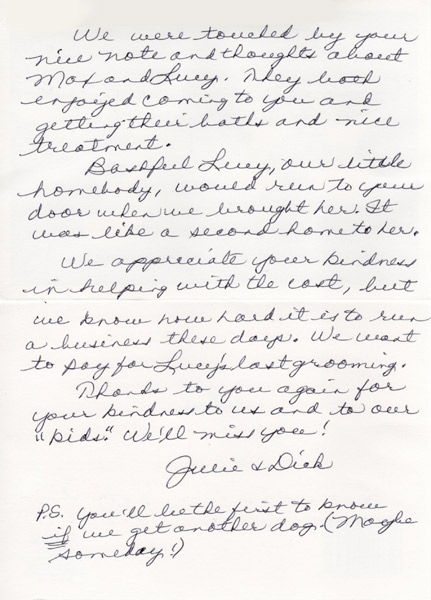 We were touched by your
nice note and thoughts about
Max and Lucy. They both
enjoyed coming to you and
getting their baths and nice
treatment.
Bashful Lucy, our little
homebody, would run to your
door when we brought her. It
was like a second home to her.
We appreciate your kindness
in helping with the cost, but
we know how hard it is to run
a business these days. We want
to pay for Lucy's last grooming.
Thanks to you again for
your kindness to us and to our
"kids." We'll miss you!
Julie & Dick
P.S. You'll be the first to know
if we get another dog. (Maybe
someday!)